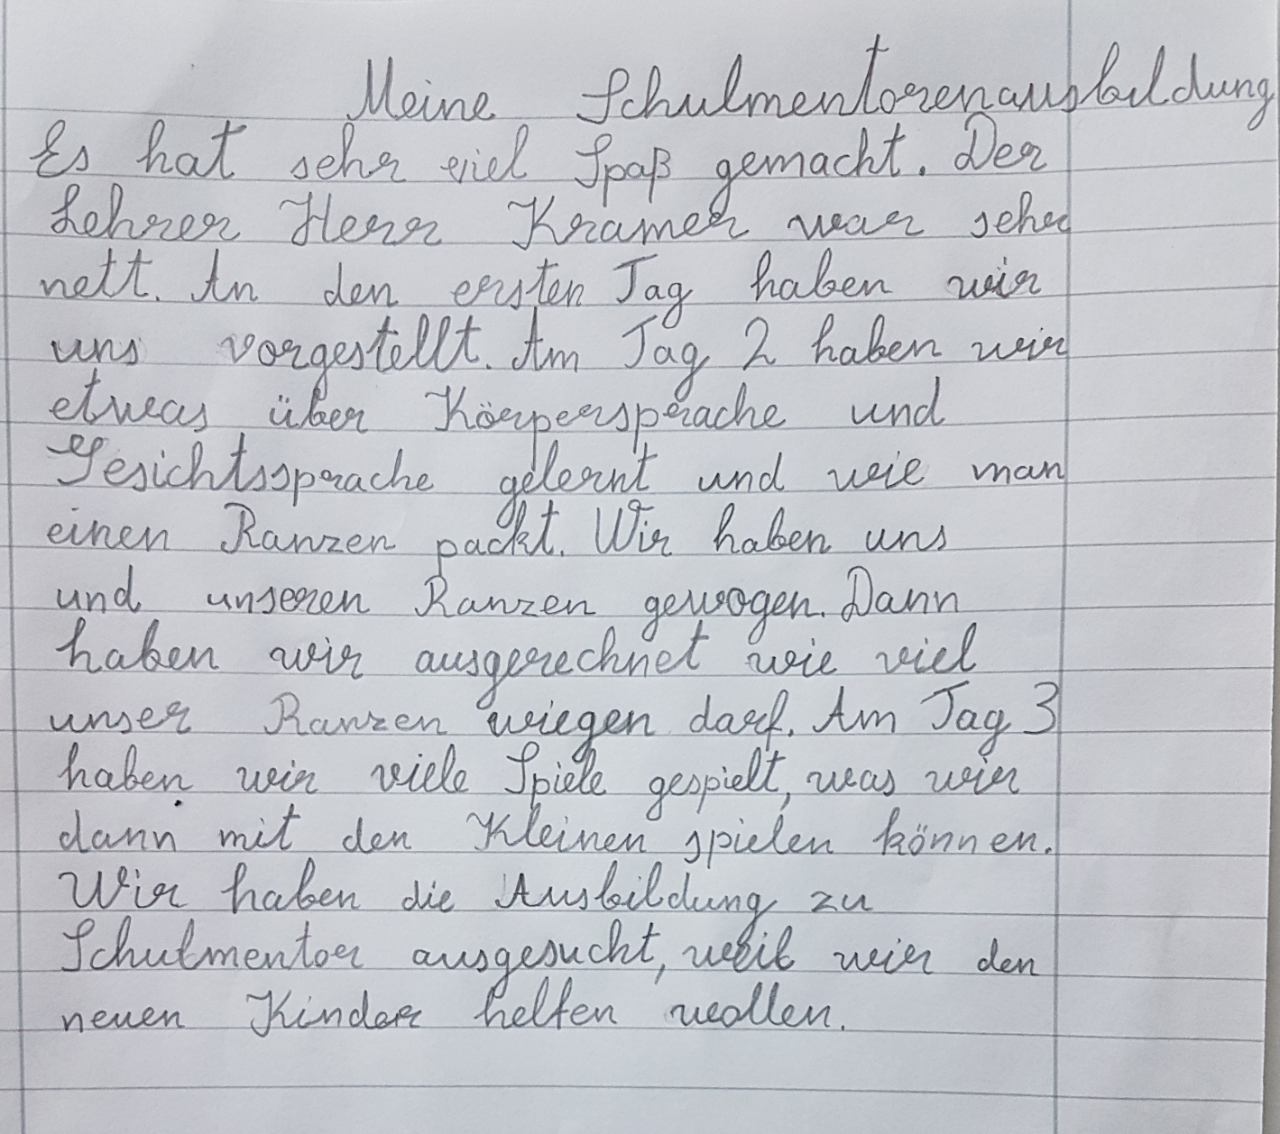 Meine Schulmentorenausbildung
Es hat sehr viel Spaß gemacht. Der
Lehrer Herr Kramer war sehr
nett. An den ersten Tag haben wir
uns vorgestellt. Am Tag 2 haben wir
etwas über Körpersprache und
Gesichtssprache gelernt und wie man
einen Ranzen packt. Wir haben uns
und unseren Ranzen gewogen. Dann
haben wir ausgerechnet wie viel
unser Ranzen wiegen darf. Am Tag 3
haben wir viele Spiele gespielt, was wir
dann mit den Kleinen spielen können.
Wir haben die Ausbildung zu
Schulmentor ausgesucht, weil wir den
neuen Kinder helfen wollen.